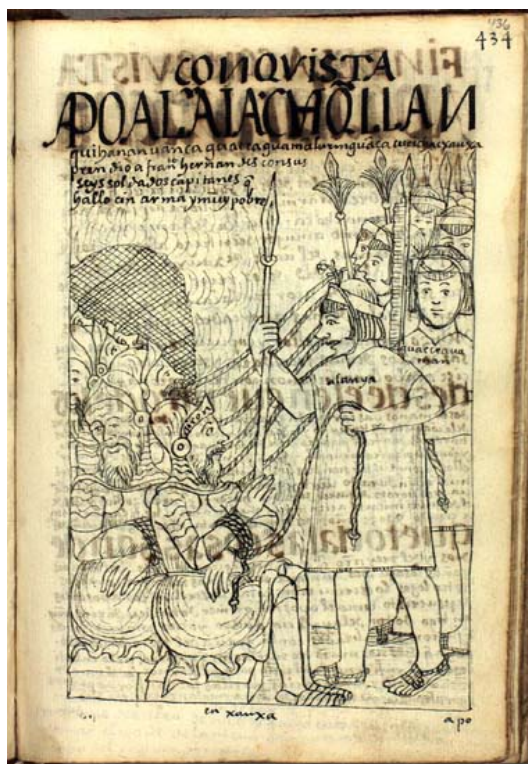 436
434
CONQVISTA
APOALAIA CHVQLLAN
qui hanan uanca quacraguaman luringuāca cucichac xauxa
prendio a franco hernandes con sus
seys soldados capitanes q̄
hallo cin arma y muy pobre
quacra gua
man
alanya
en xauxa
apo